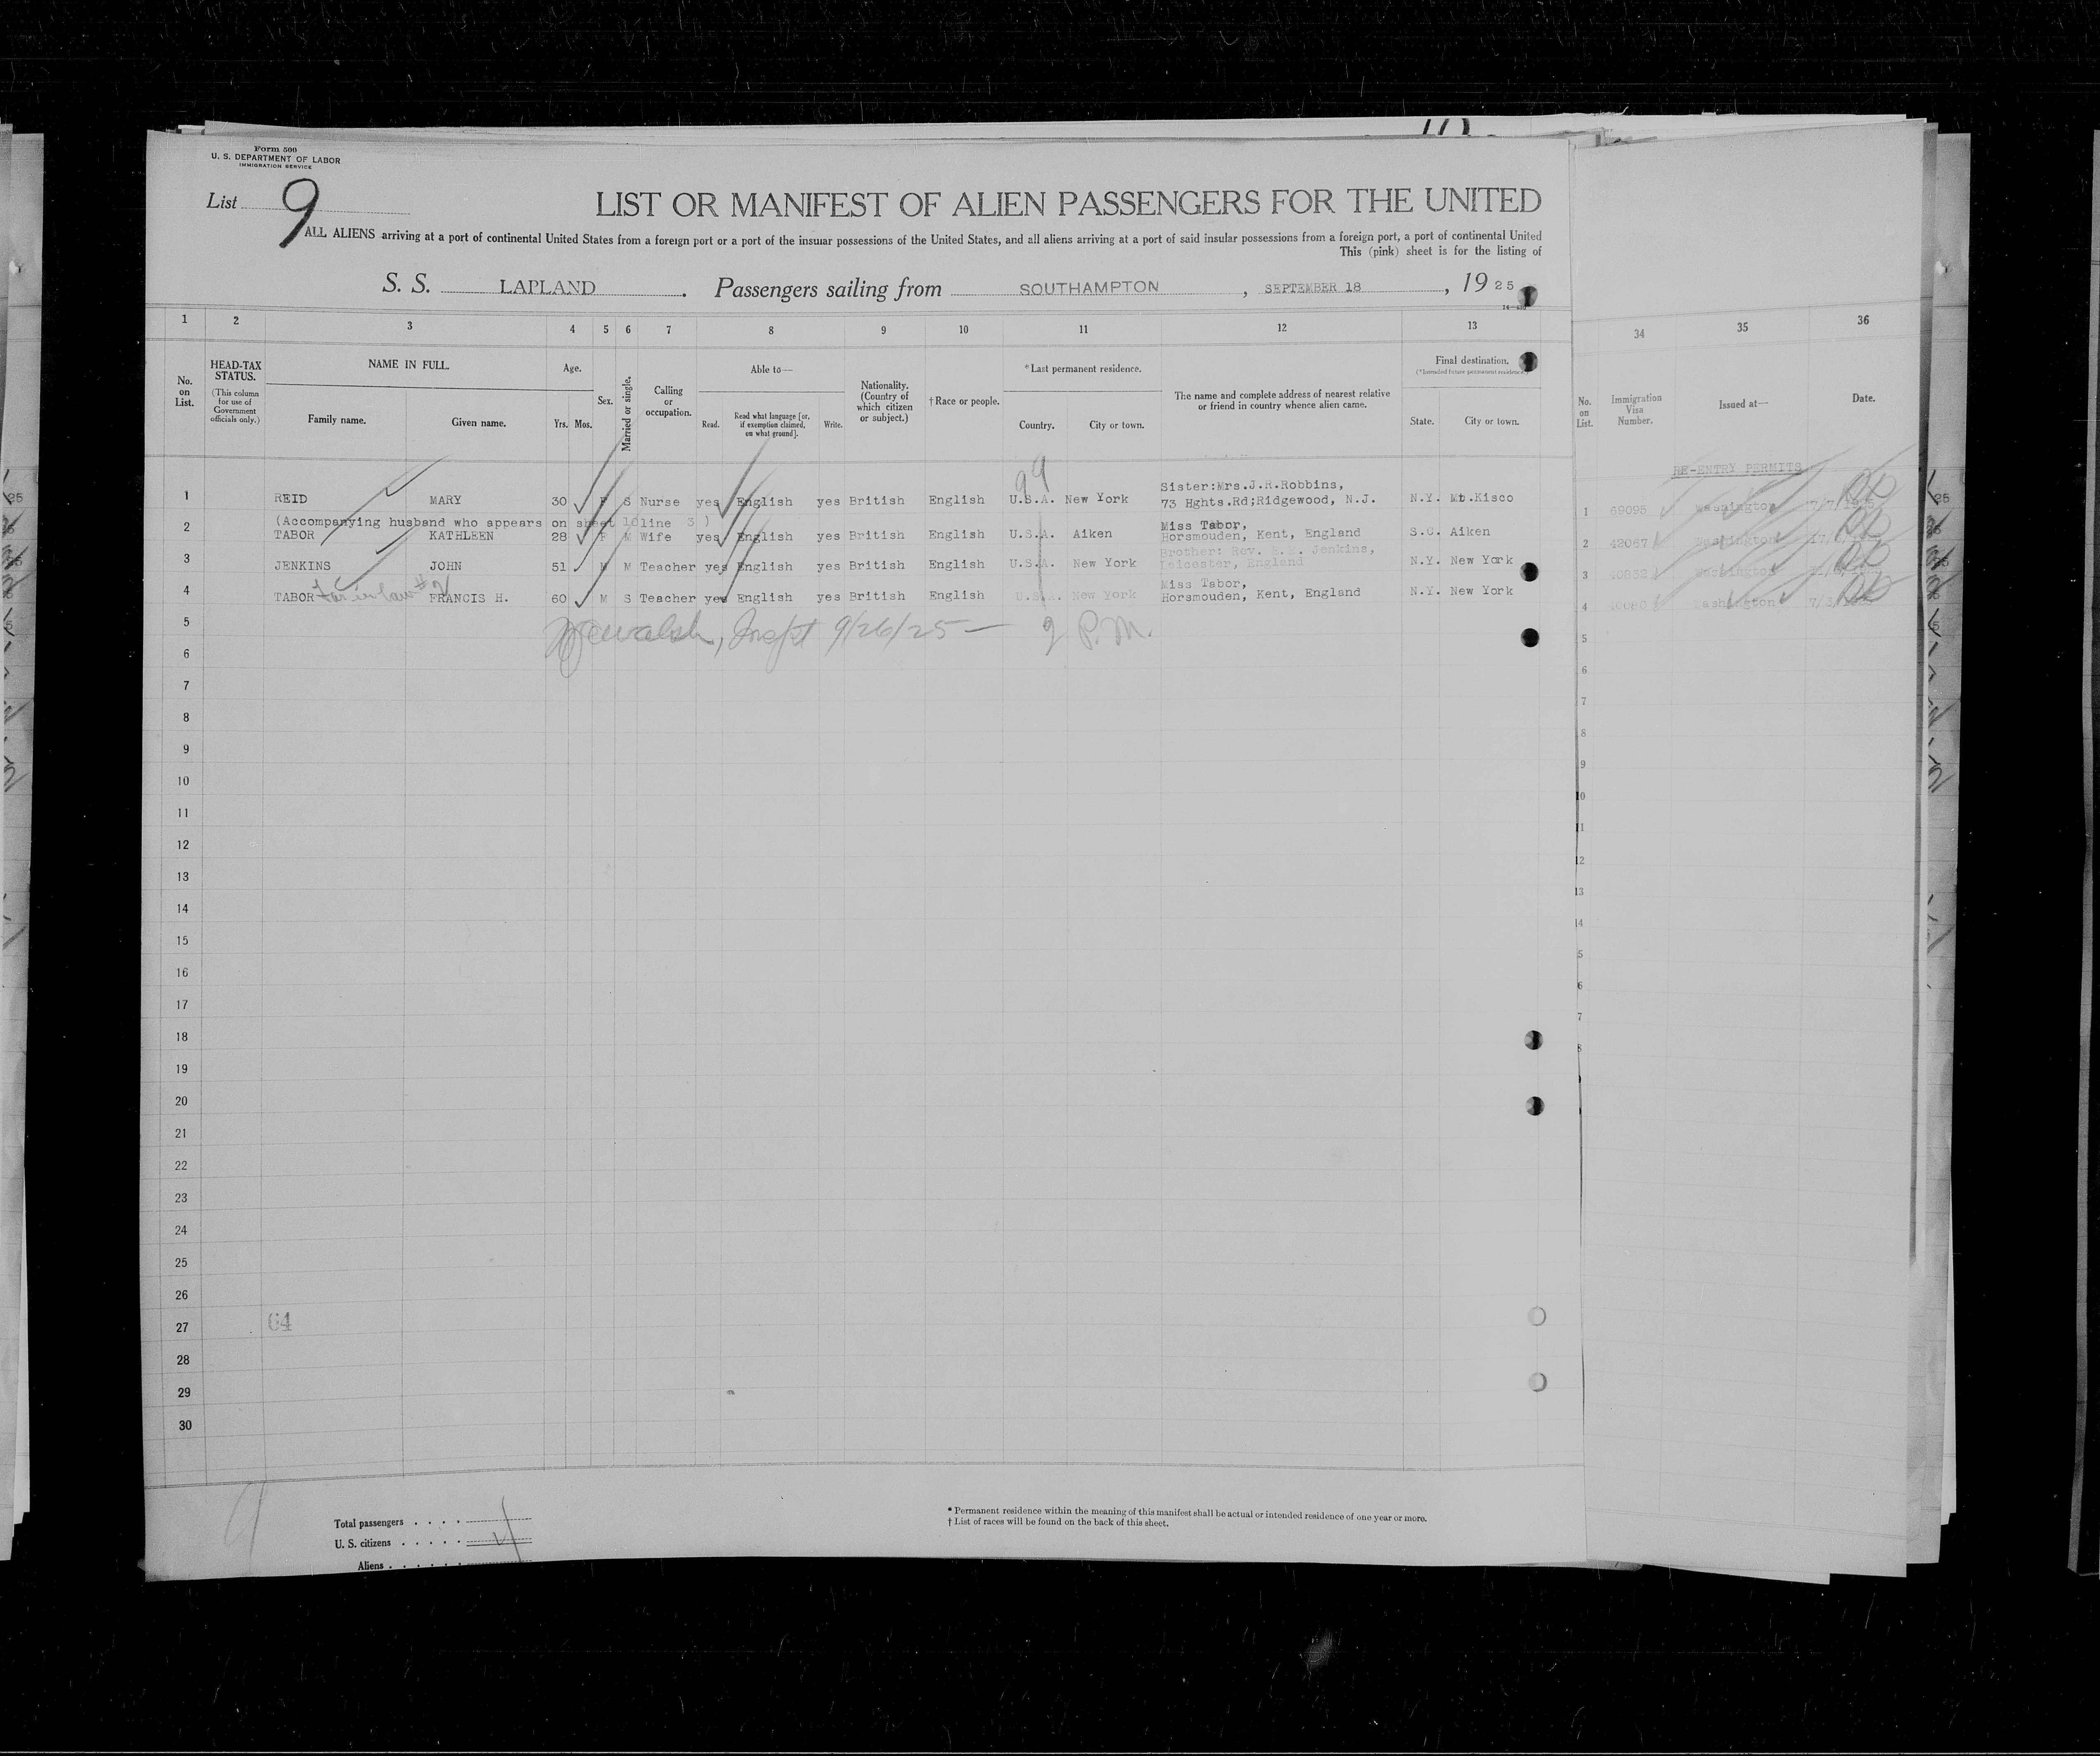 Form 500
U. S. DEPARTMENT OF LABOR
IMMIGRATION SERVICE
List 9
LIST OR MANIFEST OF ALIEN PASSENGERS FOR THE UNITED
ALL ALIENS arriving at a port of continental United States from a foreign port or a port of the insular possessions of the United States, and all aliens arriving at a port of said insular possessions from a foreign port, a port of continental United
This (pink) sheet is for the listing of
S. S. LAPLAND. Passengers sailing from SOUTHAMPTON, SEPTEMBER 18, 1925
1 2 3 4 5 6 7 8 9 10 11 12 13 34 35 36
No. on List.
HEAD-TAX STATUS.
(This column for use of Government officials only.)
NAME IN FULL.
Family name. Given name.
Age.
Yrs. Mos.
Sex.
Married or single.
Calling or occupation.
Able to—
Read. Read what language [or, if exemption claimed, on what ground]. Write.
Nationality. (Country of which citizen or subject.)
†Race or people.
*Last permanent residence.
Country. City or town.
The name and complete address of nearest relative or friend in country whence alien came.
Final destination.
(*Intended future permanent residence.)
State. City or town.
No. on List.
Immigration Visa Number.
Issued at—
Date.
RE-ENTRY PERMITS
99
Sister:Mrs.J.R.Robbins,
1 REID MARY 30 F S Nurse yes English yes British English U.S.A. New York 73 Hghts.Rd;Ridgewood, N.J. N.Y. Mt.Kisco 1 69095 Washington
(Accompanying husband who appears on sheet 10 line 3 )
Miss Tabor,
2 TABOR KATHLEEN 28 F M Wife yes English yes British English U.S.A. Aiken Horsmouden, Kent, England S.C. Aiken 2 Washington
Brother: Rev. Jenkins,
3 JENKINS JOHN 51 M M Teacher yes English yes British English U.S.A. New York Leicester, England N.Y. New York 3 Washington
Miss Tabor,
4 TABOR FRANCIS H. 60 M S Teacher yes English yes British English U.S.A. New York Horsmouden, Kent, England N.Y. New York 4 Washington
5 Walsh, Inspt 9/26/25 — 9 P.M. 5
6 6
7 7
8 8
9 9
10 10
11 11
12 12
13 13
14 14
15 5
16 6
17 7
18 8
19
20
21
22
23
24
25
26
27 64
28
29
30
9
Total passengers . . . .
U. S. citizens . . . . .
Aliens . . . . . .
* Permanent residence within the meaning of this manifest shall be actual or intended residence of one year or more.
† List of races will be found on the back of this sheet.